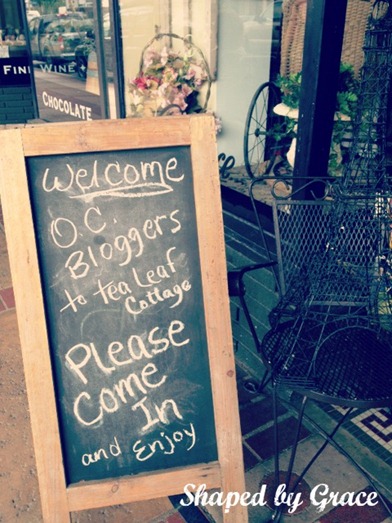 FINI
WINE +
CHOCOLATE
Welcome
O.C.
Bloggers
to Tea Leaf
Cottage
Please
Come
In
and Enjoy
Shaped by Grace